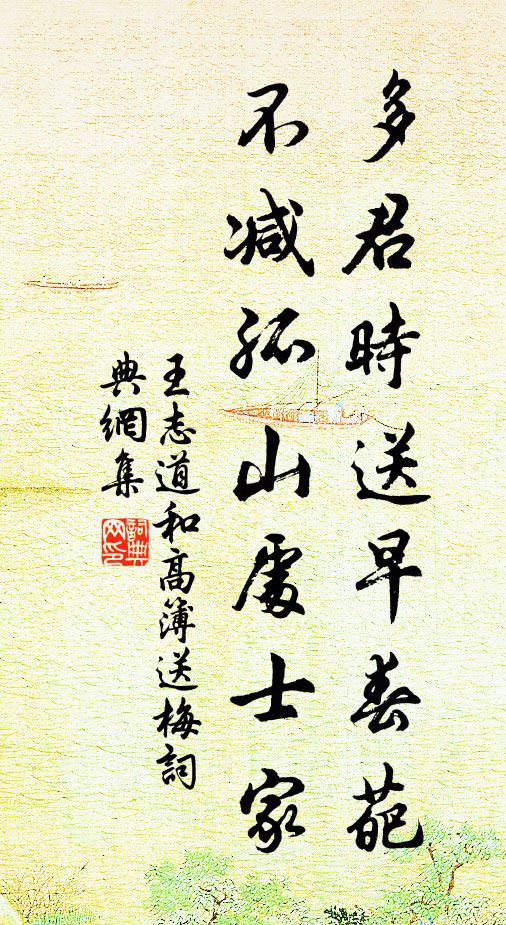 多君時送早春葩
不减孤山處士家
王志道和高簿送梅詞
典網集
詞典網印